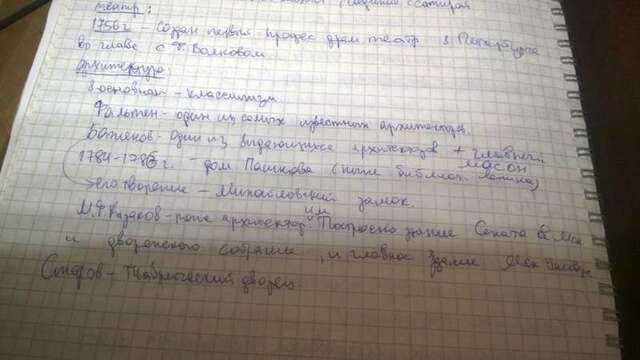 театр:
1756 г. - Создан первый професс драм театр в Петербурге
во главе с Ф. Волковом.
архитектура:
В основном - классицизм
Фельтен - один из самых известных архитекторов.
Баженов - один из выдающихся архитекторов + главный масон
1784-1786 г. - дом Пашкова (ныне библиот. Ленина)
его творение - Михайловский замок.
М.Ф. Казаков - тоже архитектор им Построено здание Сената в
и дворянского собрания, и главное здание
Старов - Таврический дворец